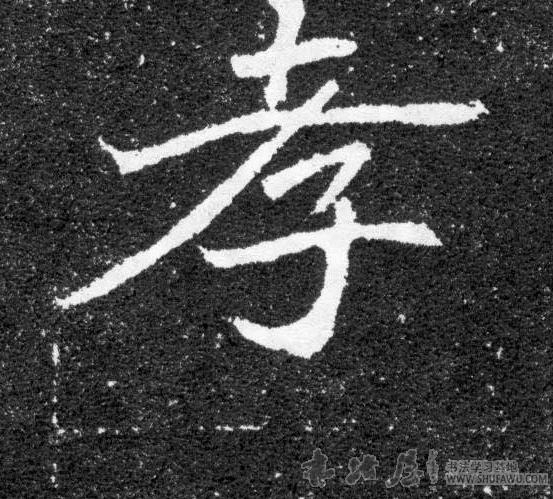 孝
书法屋
书法学习基地
WWW.SHUFAWU.COM